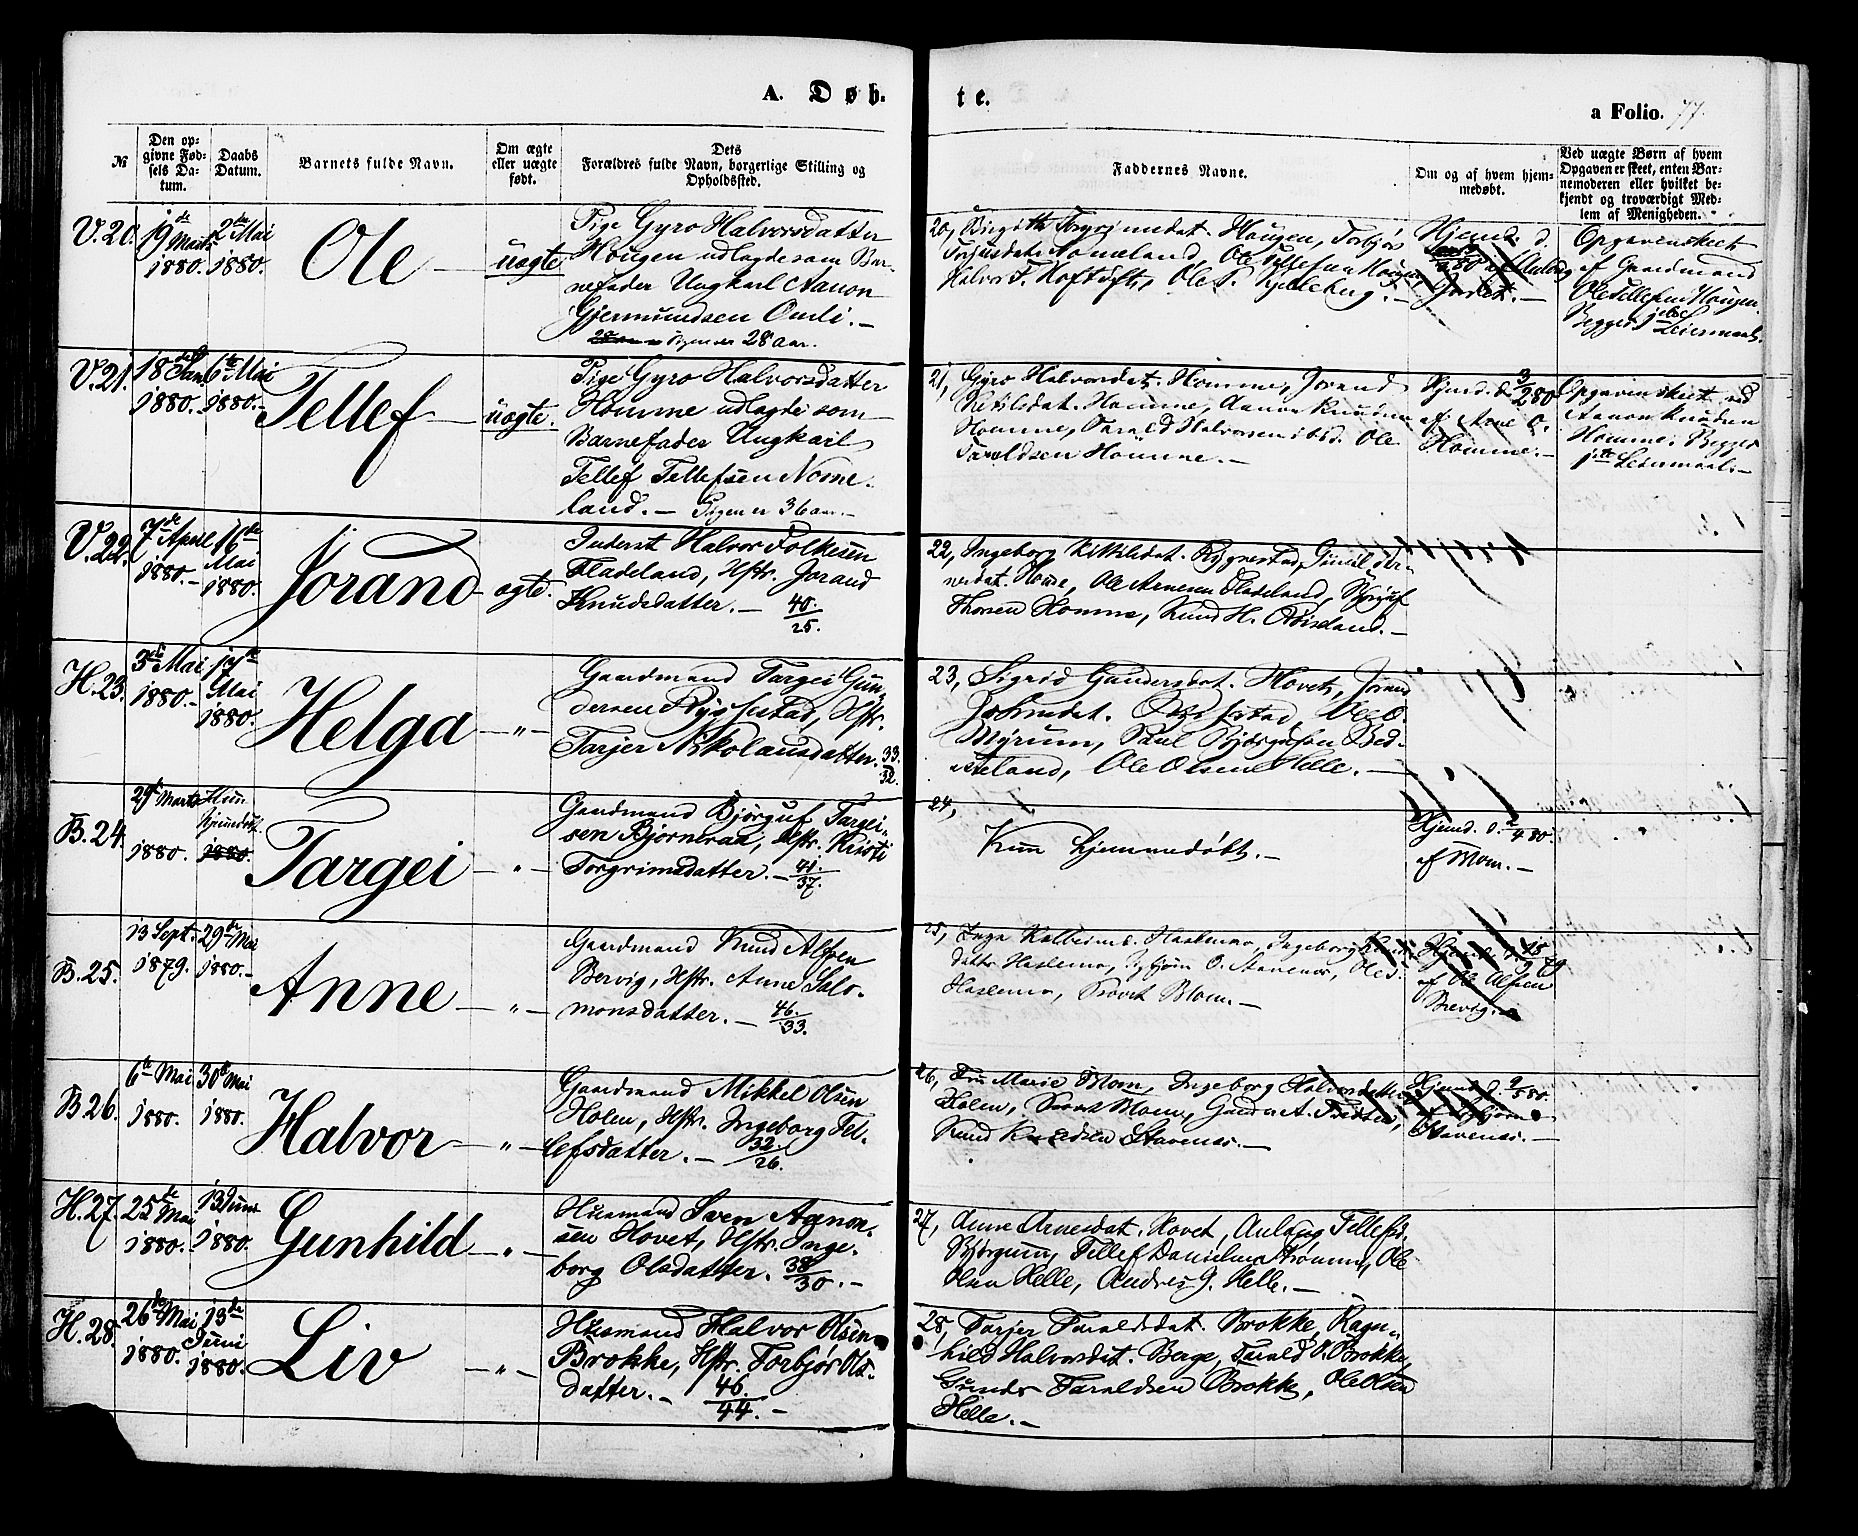 A. Døb-
te.
a Folio. 77.
№
Den op-
givne Fød-
sels Da-
tum.
Daabs
Datum.
Barnets fulde Navn.
Om ægte
eller uægte
født.
Dets
Forældres fulde Navn, borgerlige Stilling og
Opholdssted.
Faddernes Navne.
Om og af hvem hjem-
medøbt.
Ved uægte Børn af hvem
Opgaven er skeet, enten Bar-
nemoderen eller hvilket be-
kjendt og troværdigt Med-
lem af Menigheden.
V.20.
19de Marts
1880.
2den Mai
1880.
Ole
uægte
Pige Gyro Halvorsdatter
Hougen udlagde som Bar-
nefader Ungkarl Aanon
Gjermundsen Omli.—
Pigen er 28 aar.
20, Birgith Torgrimsdat. Hougen, Torbjør
Tarjeisdat. Nomeland, Ole Tellefsen Hougen,
Halvor T. Hoftuft, Ole T. Kjelleberg.—
Hjemd. d.
Opgaven skeet
af Gaardmand
Ole Tellefsen Hougen.
Begges 1ste Leiermaal.
V.21.
18de Jan.
1880.
6te Mai
1880.—
Tellef
uægte.
Pige Gyro Halvorsdatter
Homme udlagde som
Barnefader Ungkarl
Tellef Tellefsen Nome-
land.— Pigen er 36 aar.—
21, Gyro Halvorsdat. Homme, Jorand
Ketilsdat. Homme, Aanon Knudsen
Homme, Tarald Halvorsen ibid. Ole
Taraldsen Homme.—
Hjemd. d. 3/2 80
af Arne O.
Homme.—
Opgaven skeet ved
Aanon Knudsen
Homme; Begges
1ste Leiermaal.—
V.22.
7de April
1880.—
16de
Mai
1880.
Jorand
ægte.
Inderst Halvor Folkesen
Fladeland, Hstr. Jorand
Knudsdatter.— 40./25.
22, Ingeborg Kittilsdat. Rygnestad, Gunild
Homme, Ole Arnesen Fladeland, Bjørguf
Thorsen Homme, Knud H. Røiseland.—
H.23.
3die Mai
1880.—
17de
Mai
1880.
Helga
— " —
Gaardmand Targei Gun-
dersen Rysstad, Hstr.
Tarjer Nikolausdatter. 33./32.
23, Sigrid Gundersdat. Hovet, Jorand
Johnsdat. Rysstad, Ole O.
Myrum, Paul Bjørgufsen Bed-
steland, Ole Olsen Helle.—
B.24.
29 Marts
1880.
Kun
hjemmedøbt
1880.
Targei
— " —
Gaardmand Bjørguf Targei-
sen Bjørnraa, Hstr. Kristi
Torgrimsdatter.— 41./37.
24,
Kun hjemmedøbt.—
Hjemd. d. /4 80.
af Mom.—
B.25.
13 Sept.
1879.
29de Mai
1880.—
Anne
— " —
Gaardmand Knud Alfsen
Bervig, Hstr. Anne Salo-
monsdatter.— 46./33.
25, Inga Kolbeinsd. Haslemo, Ingeborg
datter Haslemo, O. Stavenes, Ole
Haslemo, Blom.—
Hjemd. d. 15/9 79
af Ole Alfsen
Brevig.
B.26.
6te Mai
1880.
30te Mai
1880.
Halvor
— " —
Gaardmand Mikkel Olsen
Holen, Hstr. Ingeborg Tel-
lefsdatter.— 32./26.
26, Fru Marie Blom, Ingeborg Halvorsdatter
Holen, Blom, Gunder A.
Knud Knudsen Stavenes.—
Hjemd. d. 9/5 80.
Stavenes.—
H.27.
25de
Mai
1880.
13 Juni
1880.
Gunhild
— " —
Husmand Sven Aanon-
sen Hovet, Hstr. Inge-
borg Olsdatter. 38/30.—
27, Anne Arnesdat. Hovet, Aulaug Tellefsd.
Bjørgum, Tellef Danielsen Strømme, Ole
Olsen Helle, Andres J. Helle.—
H.28.
26de Mai
1880.
13de
Juni
1880.
Liv
— " —
Husmand Halvor Olsen
Brokke, Hstr. Torbjør Ols-
datter.— 46./44.—
28, Tarjer Taraldsdat. Brokke, Ragn-
hild Halvorsdat. Berge, Tarald O. Brokke,
Gunder Taraldsen Brokke, Ole Olsen
Helle.—